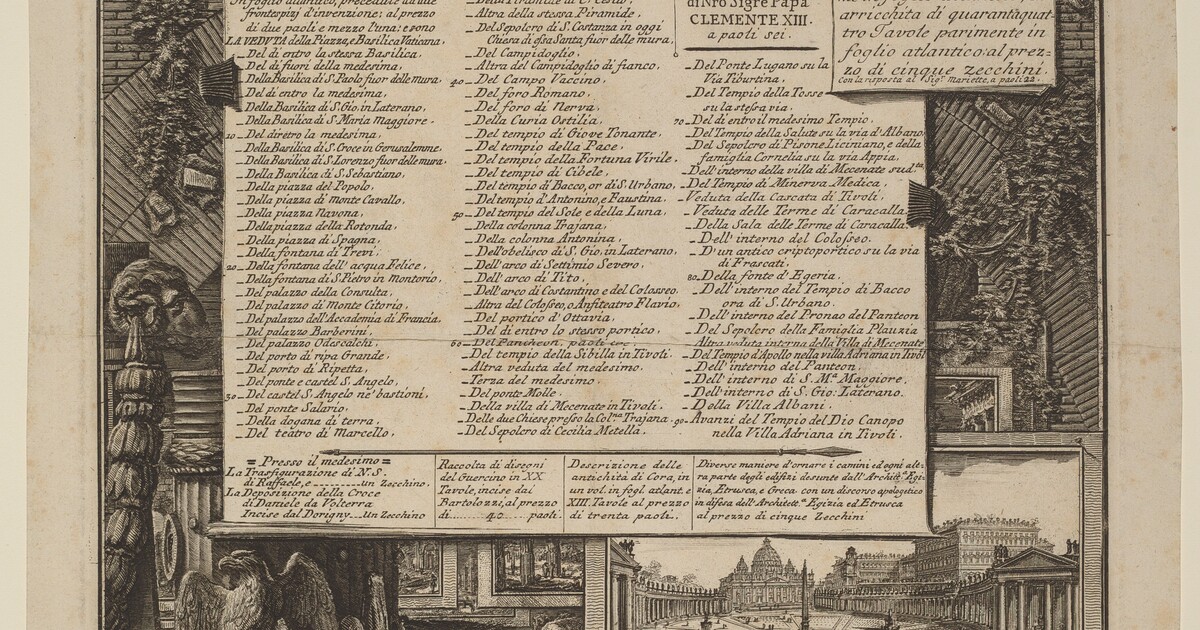 In foglio atlantico, precedute da due
frontespizj d'invenzione; al prezzo
di due paoli e mezzo l'una; e sono
LA VEDUTA della Piazza, e Basilica Vaticana,
_Del di entro la stessa Basilica,
_Del di fuori della medesima,
_Della Basilica di S. Paolo fuor delle mura,
_Del di entro la medesima,
_Della Basilica di S. Gio. in Laterano,
_Della Basilica di S. Maria Maggiore.
10_Del diretro la medesima,
_Della Basilica di S. Croce in Gerusalemme,
_Della Basilica di S. Lorenzo fuor delle mura.
_Della Basilica di S. Sebastiano,
_Della piazza del Popolo,
_Della piazza di Monte Cavallo,
_Della piazza Navona,
_Della piazza della Rotonda,
_Della piazza di Spagna,
_Della fontana di Trevi,
20_Della fontana dell'acqua Felice,
_Della fontana di S. Pietro in montorio,
_Del palazzo della Consulta,
_Del palazzo di Monte Citorio,
_Del palazzo dell'Accademia di Francia,
_Del palazzo Barberini,
_Del palazzo Odescalchi,
_Del porto di ripa Grande,
_Del porto di Ripetta,
_Del ponte e castel S. Angelo,
30_Del castel S. Angelo ne' bastioni,
_Del ponte Salario,
_Della dogana di terra,
_Del teatro di Marcello,
_Della Piramide di C. Cestio,
_Altra della stessa Piramide,
_Del Sepolcro di S. Costanza in oggi
Chiesa di essa Santa fuor delle mura,
_Del Campidoglio,
_Altra del Campidoglio di fianco,
40_Del Campo Vaccino,
_Del foro Romano,
_Del foro di Nerva,
_Della Curia Ostilia,
_Del tempio di Giove Tonante,
_Del tempio della Pace,
_Del tempio della Fortuna Virile,
_Del tempio di Cibele,
_Del tempio di Bacco, or di S. Urbano,
_Del tempio d'Antonino, e Faustina,
50_Del tempio del Sole e della Luna,
_Della colonna Trajana,
_Della colonna Antonina,
_Dell'obelisco di S. Gio. in Laterano,
_Dell'arco di Settimio Severo,
_Dell'arco di Tito,
_Dell'arco di Costantino e del Colosseo.
_Altra del Colosseo, o Anfiteatro Flavio,
_Del portico d'Ottavia,
_Del di entro lo stesso portico,
60_Del Pancheon, paoli
_Del tempio della Sibilla in Tivoli.
_Altra veduta del medesimo.
_Terza del medesimo.
_Del ponte Molle.
_Della villa di Mecenate in Tivoli.
_Delle due Chiese presso la Colna Trajana.
_Del Sepolcro di Cecilia Metella.
di Nro Sigre Papa
CLEMENTE XIII.
a paoli sei.
_Del Ponte Lugano su la
Via Tiburtina.
_Del Tempio della Tosse
su la stessa via.
70_Del di entro il medesimo Tempio.
_Del Tempio della Salute su la via d'Albano
_Del Sepolcro di Pisone Liciniano, e della
famiglia Cornelia su la via Appia.
_Dell'interno della villa di Mecenate sud.ta
_Del Tempio di Minerva Medica.
_Veduta della Cascata di Tivoli.
_Veduta delle Terme di Caracalla.
_Della Sala delle Terme di Caracalla.
_Dell'interno del Colosseo.
_D'un antico criptoportico su la via
di Frascati.
80_Della fonte d'Egeria.
_Dell'interno del Tempio di Bacco
ora di S. Urbano.
_Dell'interno del Pronao del Panteon
_Del Sepolcro della Famiglia Plauzia
_Altra veduta interna della Villa di Mecenate
_Del Tempio d'Apollo nella villa Adriana in Tivoli
_Dell'interno del Panteon.
_Dell'interno di S. M.a Maggiore.
_Dell'interno di S. Gio: Laterano.
_Della Villa Albani.
90_Avanzi del Tempio del Dio Canopo
nella Villa Adriana in Tivoli.
arricchita di quarantaquat-
tro Tavole parimente in
foglio atlantico: al prez=
zo di cinque zecchini.
Con la risposta al Sig.r Mariette, a paoli 22.
= Presso il medesimo =
La Trasfigurazione di N. S.
di Raffaele, e ------ un Zecchino.
La Deposizione della Croce
di Daniele da Volterra
Incise dal Dorigny---un Zecchino
Raccolta di disegni
del Guercino in XX
Tavole, incise dal
Bartolozzi, al prezzo
di ---- 40 --- paoli.
Descrizione delle
antichità di Cora, in
un vol. in fogl. atlant. e
XIII. Tavole al prezzo
di trenta paoli.
Diverse maniere d'ornare i camini ed ogni al-
tra parte degli edifizi desunte dall'Archit.a Egi-
zia, Etrusca, e Greca con un discorso apologetico
in difesa dell'Architett.a Egizia ed Etrusca
al prezzo di cinque Zecchini